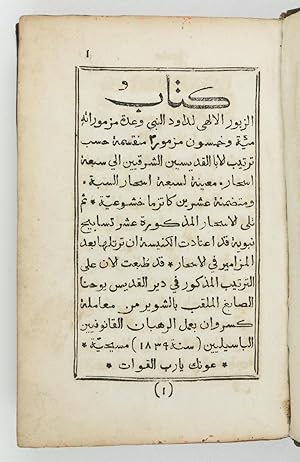 1
كتاب
الزبور الالهي لداود النبي وعدة مزموراته
مية وخمسون مزمورا منقسمة حسب
ترتيب لابا القديسين الشرقيين الى سبعة
اسحار. معينة لسبعة اسحار السبة.
ومتضمنة عشرين كاتزما خشوعية * ثم
تلى لاسحار المذكورة عشر تسابيح
نبوية قد اعتادت الكنيسة ان ترتلها بعد
المزامير في لاسحار * قد طبعت لان على
الترتيب المذكور في دير القديس يوحنا
الصابغ الملقب بالشوير من معاملة
كسروان بعمل الرهبان القانونيين
الباسيليين (سنة ١٨٣٤) مسيحية *
* عونك يارب القوات *
(١)